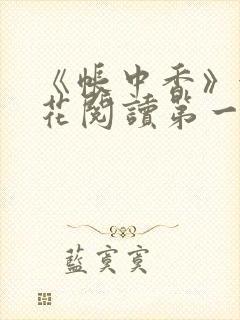 《帳中香》
花閱讀第一
藍寞寞